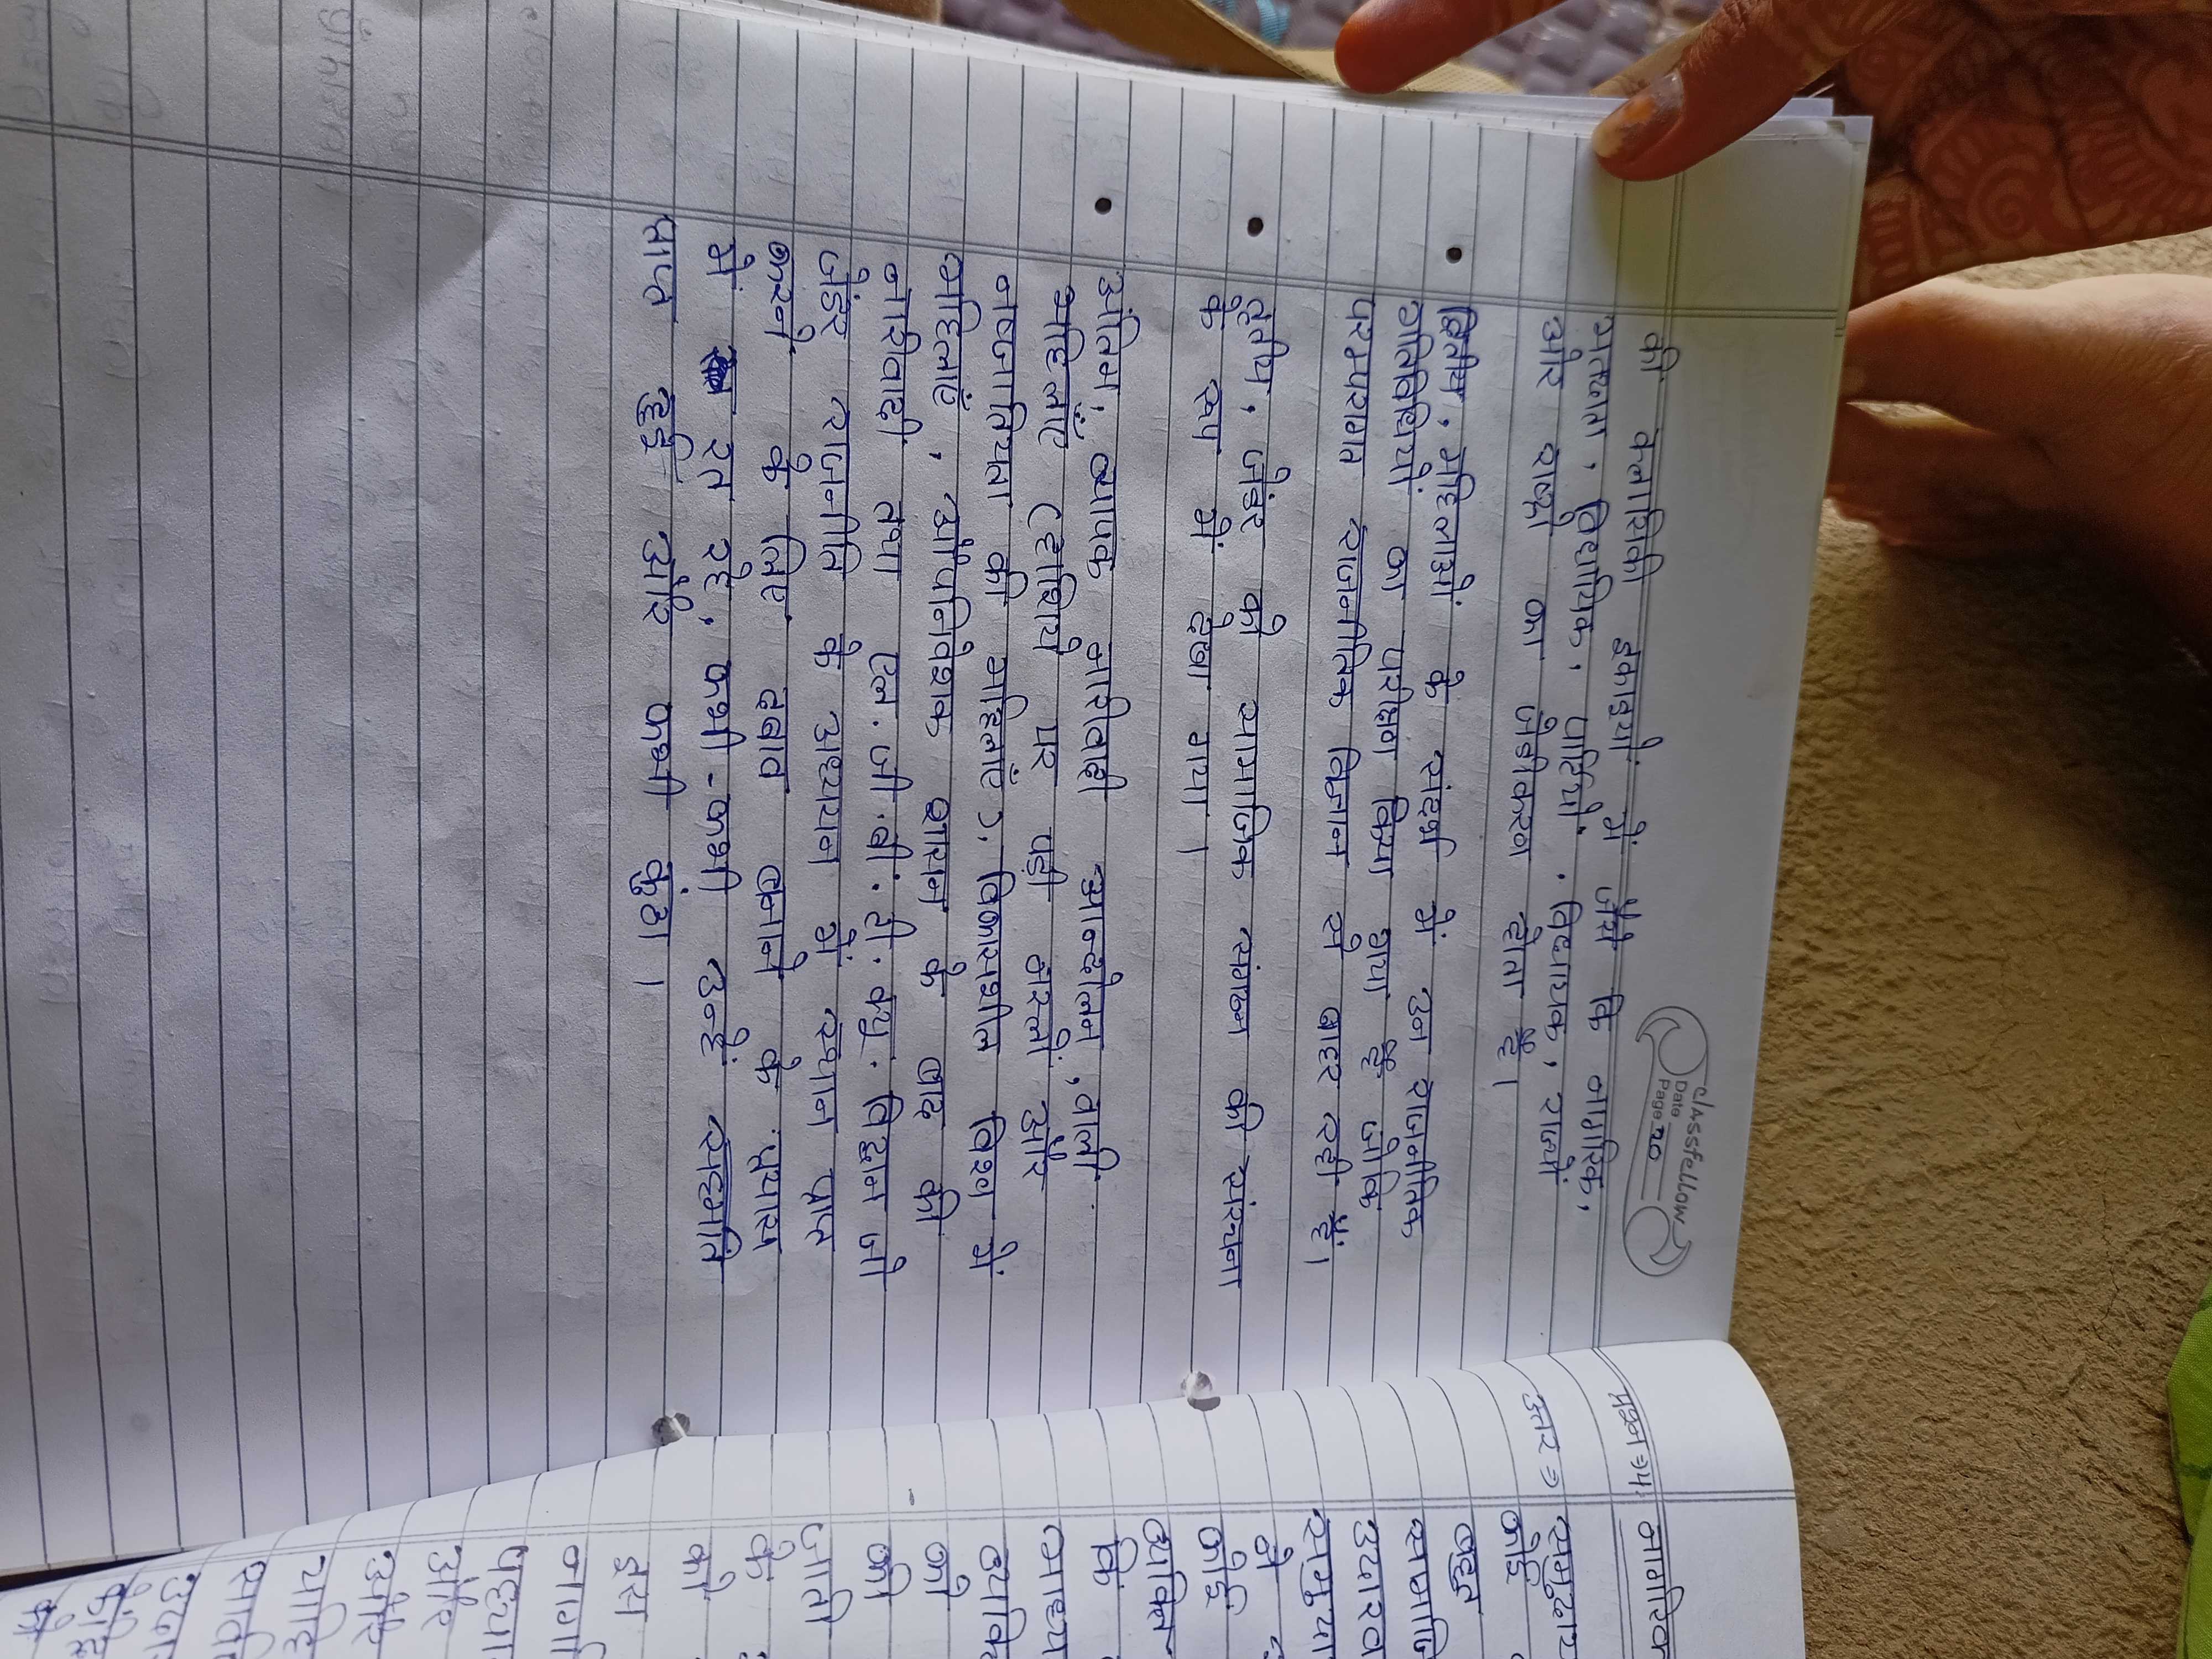 classfellow
Date
Page 20
की क्लासिकी इकाइयों में जैसे कि नागरिक,
मतदाता, विधायिक, पार्टियों, विधायक, राज्यों
और राष्ट्रों का जेंडीकरण होता है।
द्वितीय, महिलाओं के संदर्भ में उन राजनीतिक
गतिविधियों का परीक्षण किया गया है जोकि
परम्परागत राजनीतिक विज्ञान से बाहर रही हैं।
तृतीय, जेंडर को सामाजिक संगठन की संरचना
के रूप में देखा गया।
अंतिम, व्यापक नारीवादी आन्दोलन, वाली
महिलाएँ (हाशिये पर पड़ी नस्लों और
नृजातियता की महिलाएँ), विकासशील विश्व में
महिलाएं, औपनिवेशक शासन के बाद की
नारीवादी तथा एल.जी.बी.टी.क्यु. विद्वान जो
जेंडर राजनीति के अध्ययन में स्थान प्राप्त
करने के लिए दबाव बनाने के प्रयास
में रत रहे, कभी-कभी उन्हें सहमति
प्राप्त हुई और कभी कुंठा।
प्रश्न
उत्तर
समुदाय
कोई
बहुत
उधारण
कोई
कि
को
की
जाति
के
को
इस
और
और
यदि